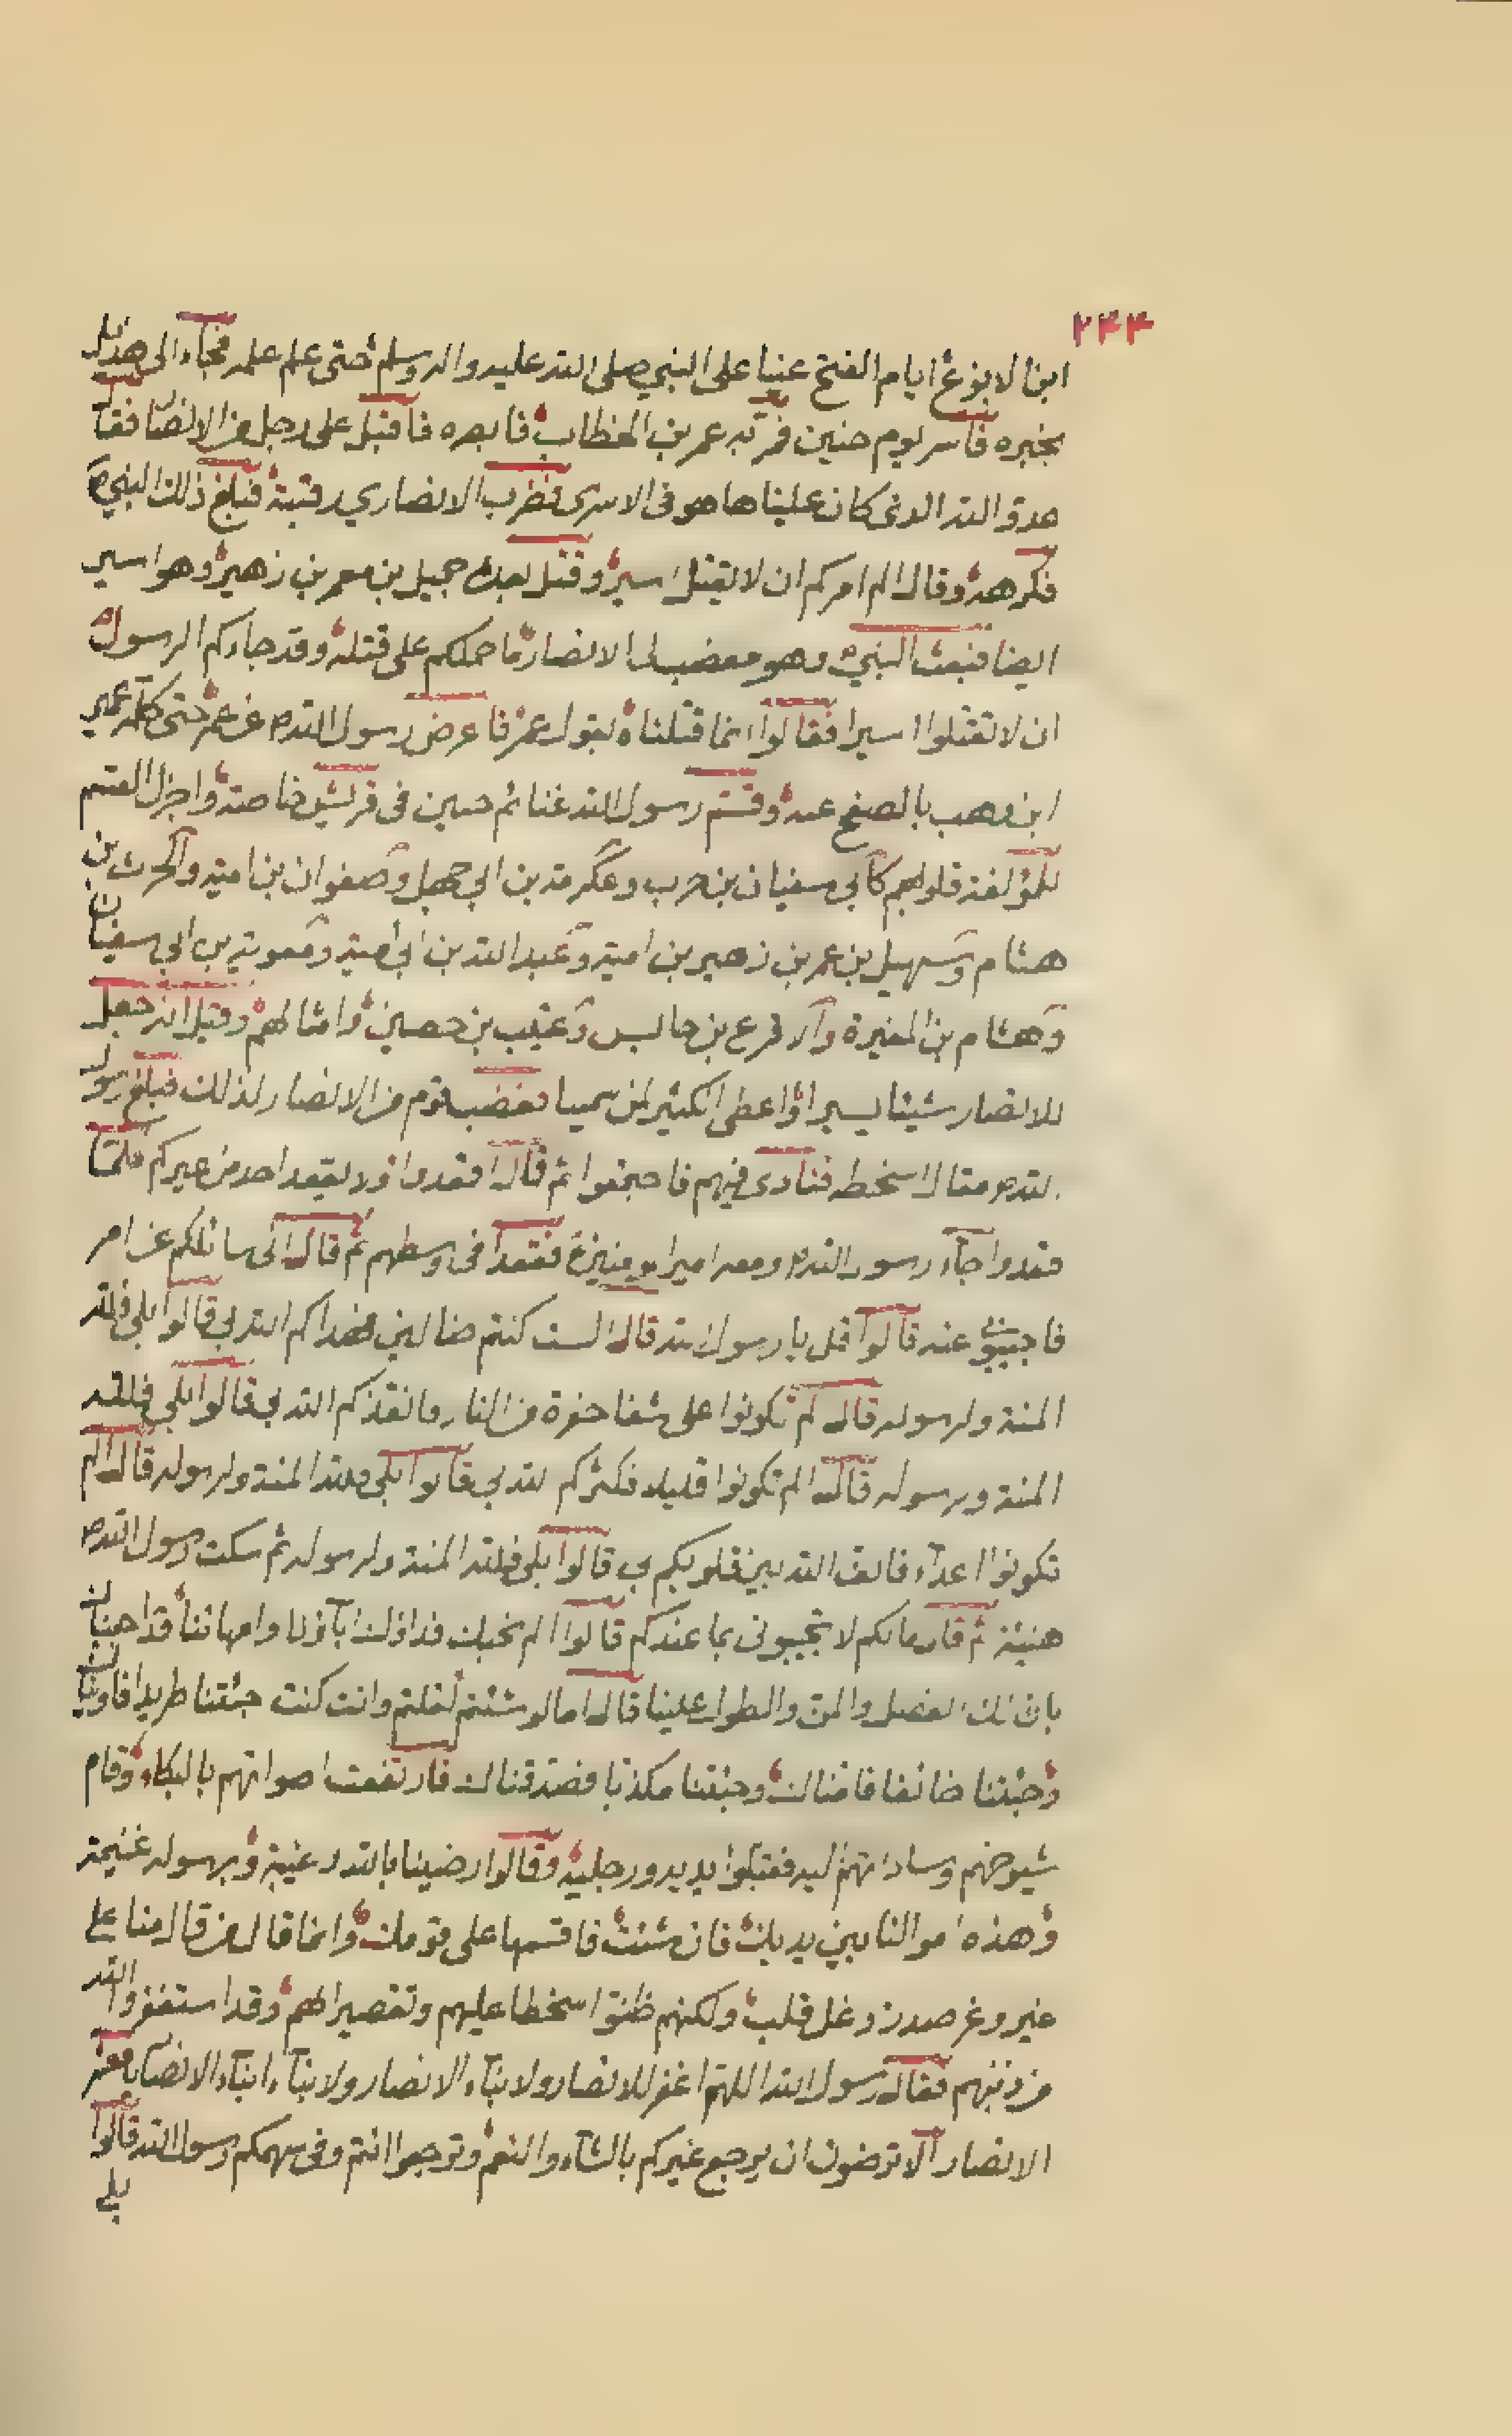 ۲۴۴
ابن الابزغ ايام الفتح عينا على النبي صلى الله عليه واله وسلم حتى علم علمه فجاء الى هذيل
يخبره فاسر يوم حنين فمر به عمر بن الخطاب فابصره فاقبل على رجل من الانصار فقال
عدو الله الذي كان علينا ها هو في الاسرى فضرب الانصاري رقبته فبلغ ذلك النبي ص
فكرهه وقال الم امركم ان لا يقتل اسير وقتل بعده جميل بن معمر بن زهير وهو اسير
ايضا فبعث النبي ص وهو مغضب الى الانصار ما حملكم على قتله وقد جاءكم الرسول
ان لا تقتلوا اسيرا فقالوا انما قتلناه بقول عمر فاعرض رسول الله ص عن عمر حتى كلمه عمير
ابن وهب بالصفح عنه وقسم رسول الله غنائم حنين في قريش خاصة واجزل القسم
للمؤلفة قلوبهم كابي سفيان بن حرب وعكرمة بن ابي جهل وصفوان بن امية والحرث بن
هشام وسهيل بن عمر بن زهير بن امية وعبد الله بن ابي امية ومعوية بن ابي سفيان
وهشام بن المغيرة والاقرع بن حابس وعيب بن حصين وامثالهم وقيل انه جعل
للانصار شيئا يسيرا واعطى الكثير لمن سمينا فغضب قوم من الانصار لذلك فبلغ رسول
الله ص مقال اسخطه فنادى فيهم فاجتمعوا ثم قال اقعدوا ولا يقعد احد من غيركم فلما
قعدوا جاء رسول الله ص ومعه امير المومنين ع فقعدا في وسطهم ثم قال اني سائلكم عن امر
فاجيبوني عنه قالوا قل يا رسول الله قال الست كنتم ضالين فهداكم الله بي قالوا بلى فلله
المنة ولرسوله قال لم تكونوا على شفا حفرة من النار فانقذكم الله بي قالوا بلى فلله
المنة ورسوله قال الم تكونوا قليلا فكثركم الله بي قالوا بلى فلله المنة ولرسوله قال الم
تكونوا اعداء فالف الله بين قلوبكم بي قالوا بلى فلله المنة ولرسوله ثم سكت رسول الله ص
هنيئة ثم قال ما لكم لا تجيبوني بما عندكم قالوا الم نجبك فداؤك اباؤنا وامهاتنا قد اجبناك
بان لك الفضل والمن والطول علينا قال اما لو شئتم لقلتم وانت كنت جئتنا طريدا فاويناك
وجئتنا خائفا فامناك وجئتنا مكذبا فصدقناك فارتفعت اصواتهم بالبكاء وقام
شيوخهم وساداتهم اليه فقبلوا يديه ورجليه وقالوا رضينا بالله رغيبة وبرسوله غنيمة
وهذه اموالنا بين يديك فان شئت فاقسمها على قومك وانما قال من قال منا على
غير وغر صدر وغل قلب ولكنهم ظنوا سخطا عليهم وتقصيرا لهم وقد استغفروا الله
من ذنبهم فقال رسول الله اللهم اغفر للانصار ولابناء الانصار ولابناء ابناء الانصار يا معشر
الانصار الا ترضون ان يرجع غيركم بالشاء والنعم وترجعوا انتم وفي سهمكم رسول الله قالوا
بلى